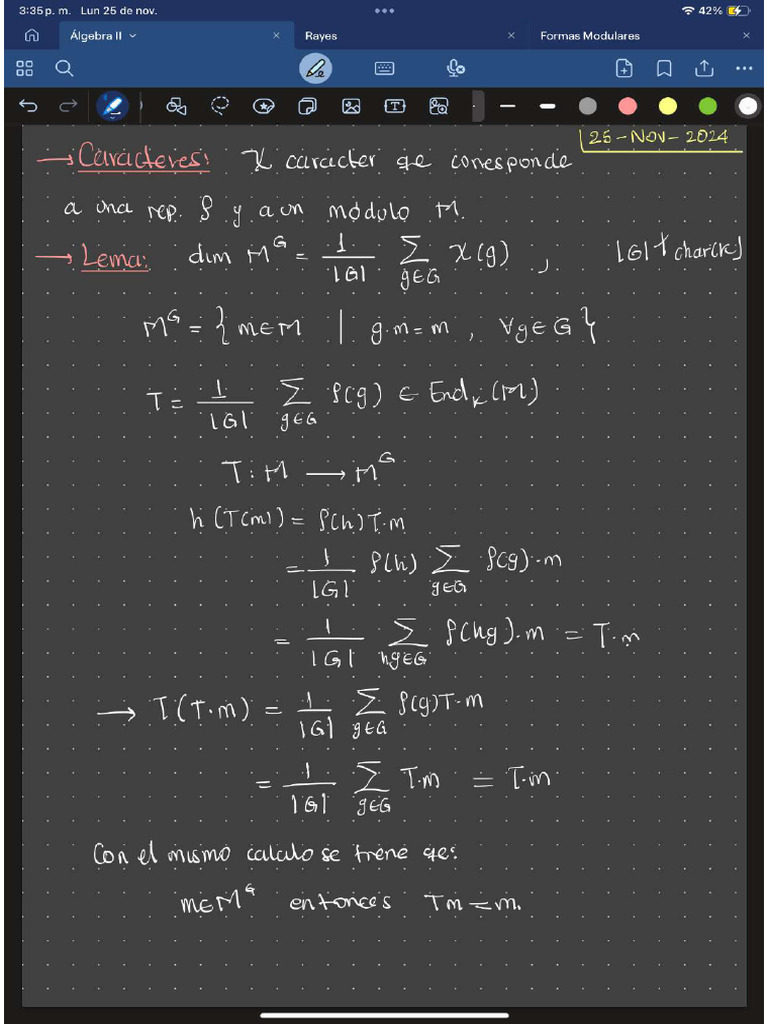 3:35 p. m. Lun 25 de nov.
42%
Álgebra II
Rayes
Formas Modulares
25-Nov-2024
→ Caracteres: χ caracter qe corresponde
a una rep. ρ y a un módulo M.
→ Lema: dim M^G = 1/|G| Σ_{g∈G} χ(g) , |G| ∤ char(K)
M^G = { m∈M | g·m = m , ∀g∈G }
T = 1/|G| Σ_{g∈G} ρ(g) ∈ End_K(M)
T: M → M^G
h (T(m)) = ρ(h)T·m
= 1/|G| ρ(h) Σ_{g∈G} ρ(g)·m
= 1/|G| Σ_{hg∈G} ρ(hg)·m = T·m
→ T(T·m) = 1/|G| Σ_{g∈G} ρ(g)T·m
= 1/|G| Σ_{g∈G} T·m = T·m
Con el mismo calculo se tiene qe:
m∈M^G entonces Tm = m.